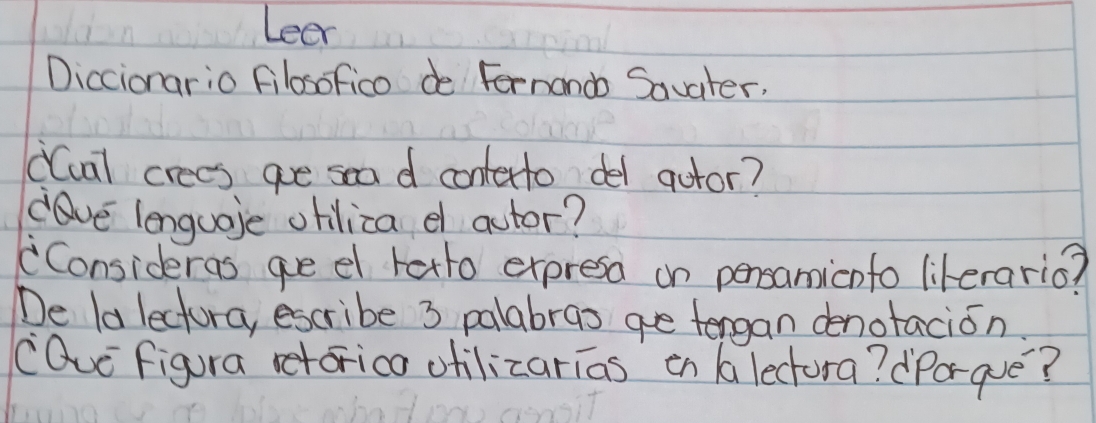 Leer
Diccionario Filosofico de Fernando Savater.
¿Cual crees que sea el contexto del autor?
¿Qué lenguaje utiliza el autor?
¿Consideras que el texto expresa un pensamiento literario?
De la lectura, escribe 3 palabras que tengan denotación.
¿Qué figura retórica utilizarías en la lectura? ¿Por qué?